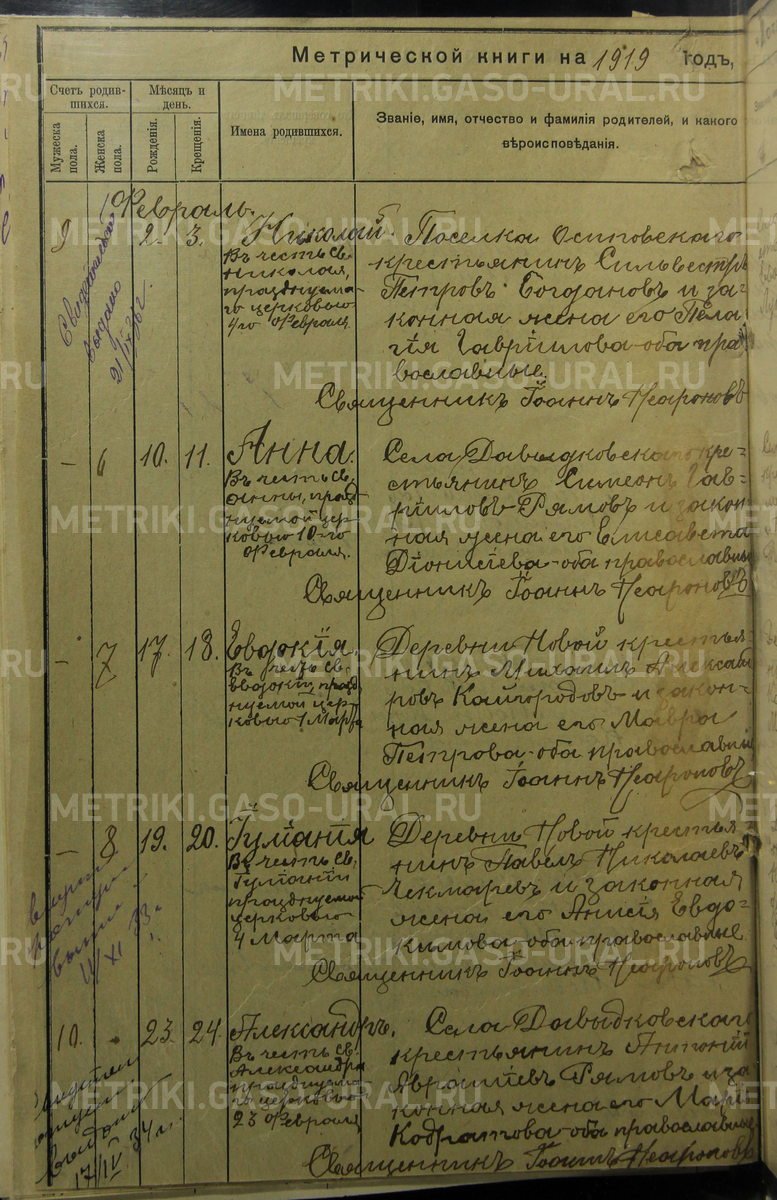 Метрической книги на 1919 годъ,
Счетъ родившихся.
Мѣсяцъ и день.
Имена родившихся.
Званіе, имя, отчество и фамилія родителей, и какого вѣроисповѣданія.
Мужеска пола.
Женска пола.
Рожденія.
Крещенія.
Февраль.
9 2. 3. Николай.
Въ честь Св.
Николая,
празднуема-
го церковью
4го Февраля
Поселка Осиповскаго
крестьянинъ Сильвестръ
Петровъ Богдановъ и за-
конная жена его Пела
гія Гавріилова оба пра
вославные.
Священникъ Іоаннъ
– 6 10. 11. Анна.
Въ честь Св.
Анны, празд
нуемой цер-
ковью 10-го
Февраля.
Села Давыдковскаго кре-
стьянинъ Симеонъ Гав-
рииловъ Рямовъ и закон
ная жена его Елисавета
Діонисіева оба православные
Священникъ Іоаннъ
– 7 17. 18. Евдокія.
Въ честь Св.
Евдокіи, празд
нуемой цер-
ковью 1 Марта
Деревни Новой крестья-
нинъ Михаилъ Александ
ровъ Кайгородовъ и закон-
ная жена его Мавра
Петрова оба православные
Священникъ Іоаннъ
– 8 19. 20. Іуліанія
Въ честь Св.
Іуліаніи
празднуемой
церковью
4 Марта
Деревни Новой крестья
нинъ Павелъ Николаевъ
Чекмаревъ и законная
жена его Анисія Евдо-
кимова оба православные
Священникъ Іоаннъ
10. - 23. 24. Александръ.
Въ честь Св.
Александра
празднуема
го церковью
23 Февраля
Села Давыдковскаго
крестьянинъ Антоній
Рямовъ и за
конная жена его Марія
Кодратова оба православные
Священникъ Іоаннъ
METRIKI.GASO-URAL.RU